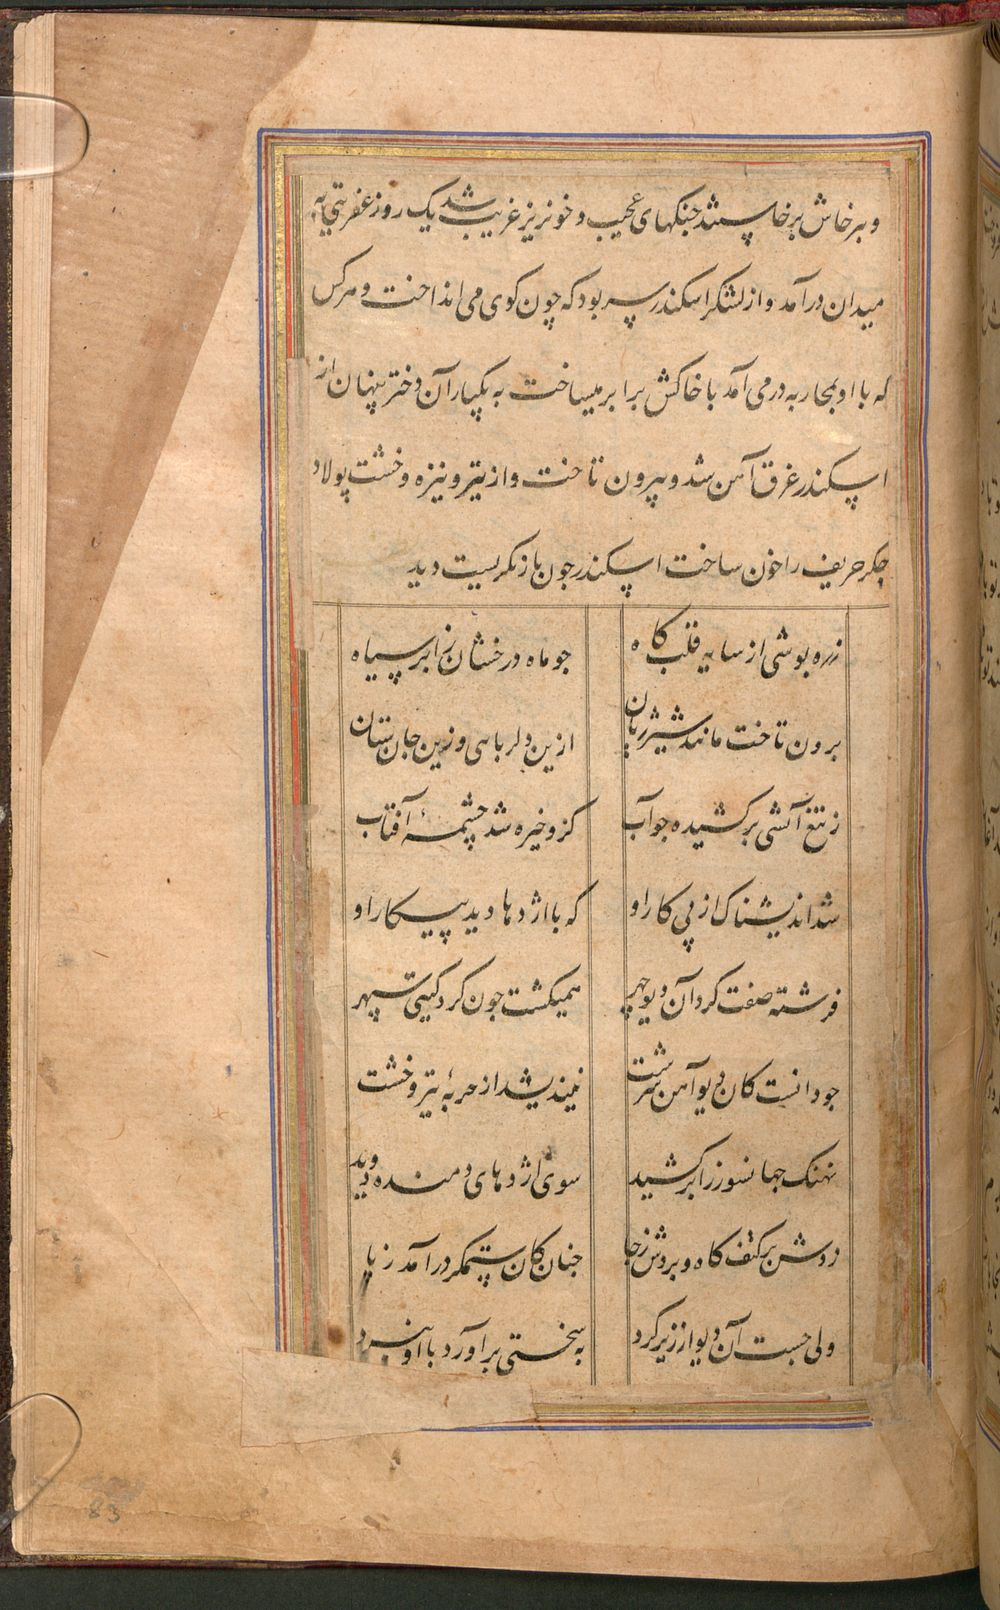 و برخاش برخاستند جنکهای عجیب و خونریز غریب شد یک روز عفریتی به
میدان درآمد و از لشکر اسکندر سر بود که چون کوی می انداخت و هرکس
که با او بمحاربه درمی آمد با خاکش برابر میساخت به یکبار آن دختر پنهان از
اسکندر غرق آهن شد و بیرون تاخت و از تیر و نیزه و خشت پولاد
جکر حریف را خون ساخت اسکندر جون باز نکریست دید
زره پوشی از سایه قلب کاه
جو ماه درخشان ز ابر سیاه
برون تاخت مانند شیر ژیان
ازین دلربای و زین جان ستان
ز تیغ آتشی برکشیده جو آب
کزو خیره شد چشمهٔ آفتاب
شد اندیشناک از پی کار او
که با اژدها دید پیکار او
فرشته صفت کرد آن دیو چهر
همیکشت جون کرد کیتی سپهر
جو دانست کان دیو آهن سرشت
نیندیشد از حربهٔ تیر و خشت
نهنک جهانسوز را برکشید
سوی اژدهای دمنده دوید
زدش بر کتف کاه و بردش ز جا
جنان کان ستمکر درآمد ز پا
ولی جست آن دیو از زیر کرد
به سختی برآورد با او نبرد
83